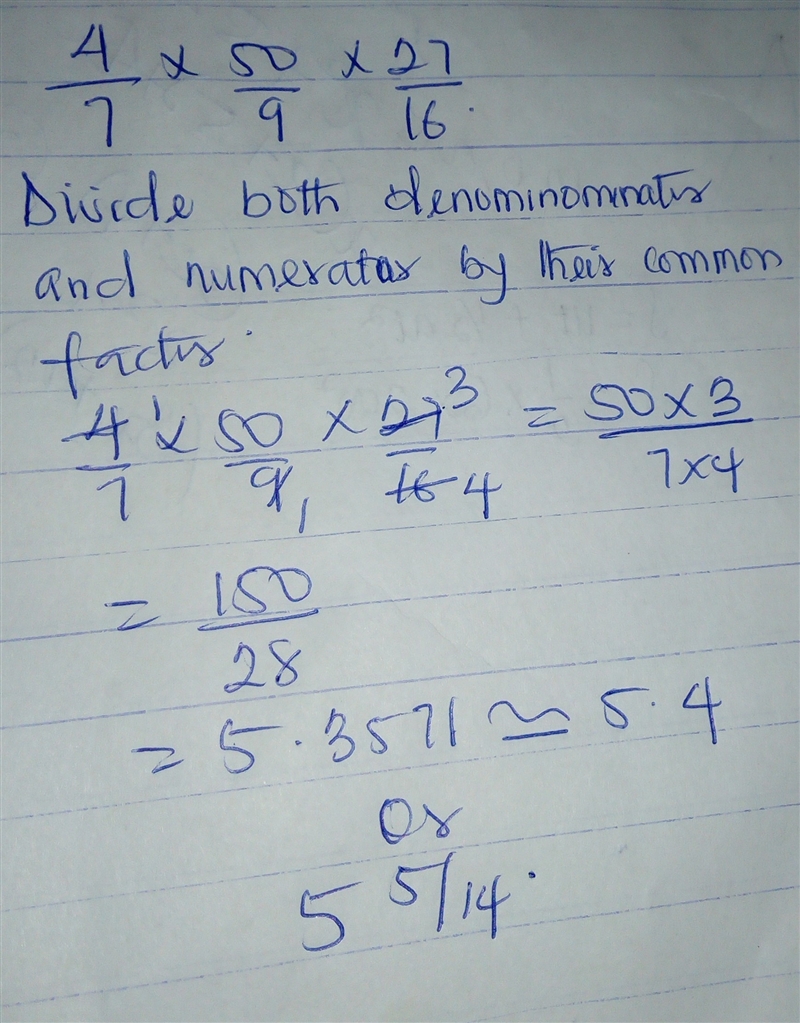 4/7 × 50/9 × 27/16.
Divide both denominominators
and numerator by their common
factor.
4̶ 1/7 × 50/9̶ 1 × 2̶7̶ 3/1̶6̶ 4 = 50×3/7×4
= 150/28
= 5.3571 ≃ 5.4
Or
5 5/14.